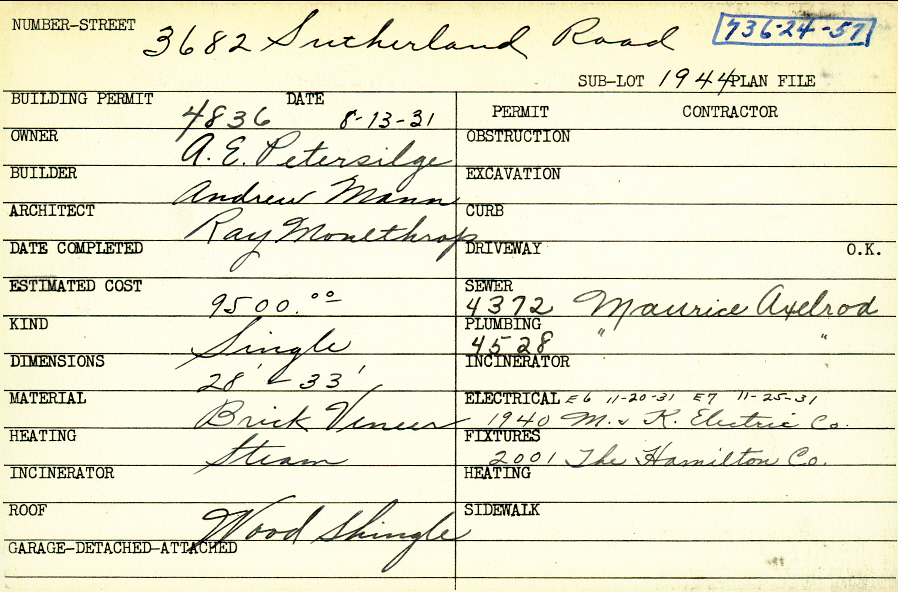 NUMBER-STREET 3682 Sutherland Road 736-24-57
SUB-LOT 1944 PLAN FILE
BUILDING PERMIT 4836 DATE 8-13-31
PERMIT CONTRACTOR
OWNER A. E. Petersilge
OBSTRUCTION
BUILDER Andrew Mann
EXCAVATION
ARCHITECT Ray Monethrop
CURB
DATE COMPLETED
DRIVEWAY O.K.
ESTIMATED COST 9500.00
SEWER 4372 Maurice Axelrod
KIND Single
PLUMBING 4528 " "
DIMENSIONS 28' - 33'
INCINERATOR
MATERIAL Brick Veneer
ELECTRICAL E6 11-20-31 E7 11-25-31
1940 M. & K. Electric Co.
HEATING Steam
FIXTURES 2001 The Hamilton Co.
INCINERATOR
HEATING
ROOF Wood Shingle
SIDEWALK
GARAGE-DETACHED-ATTACHED